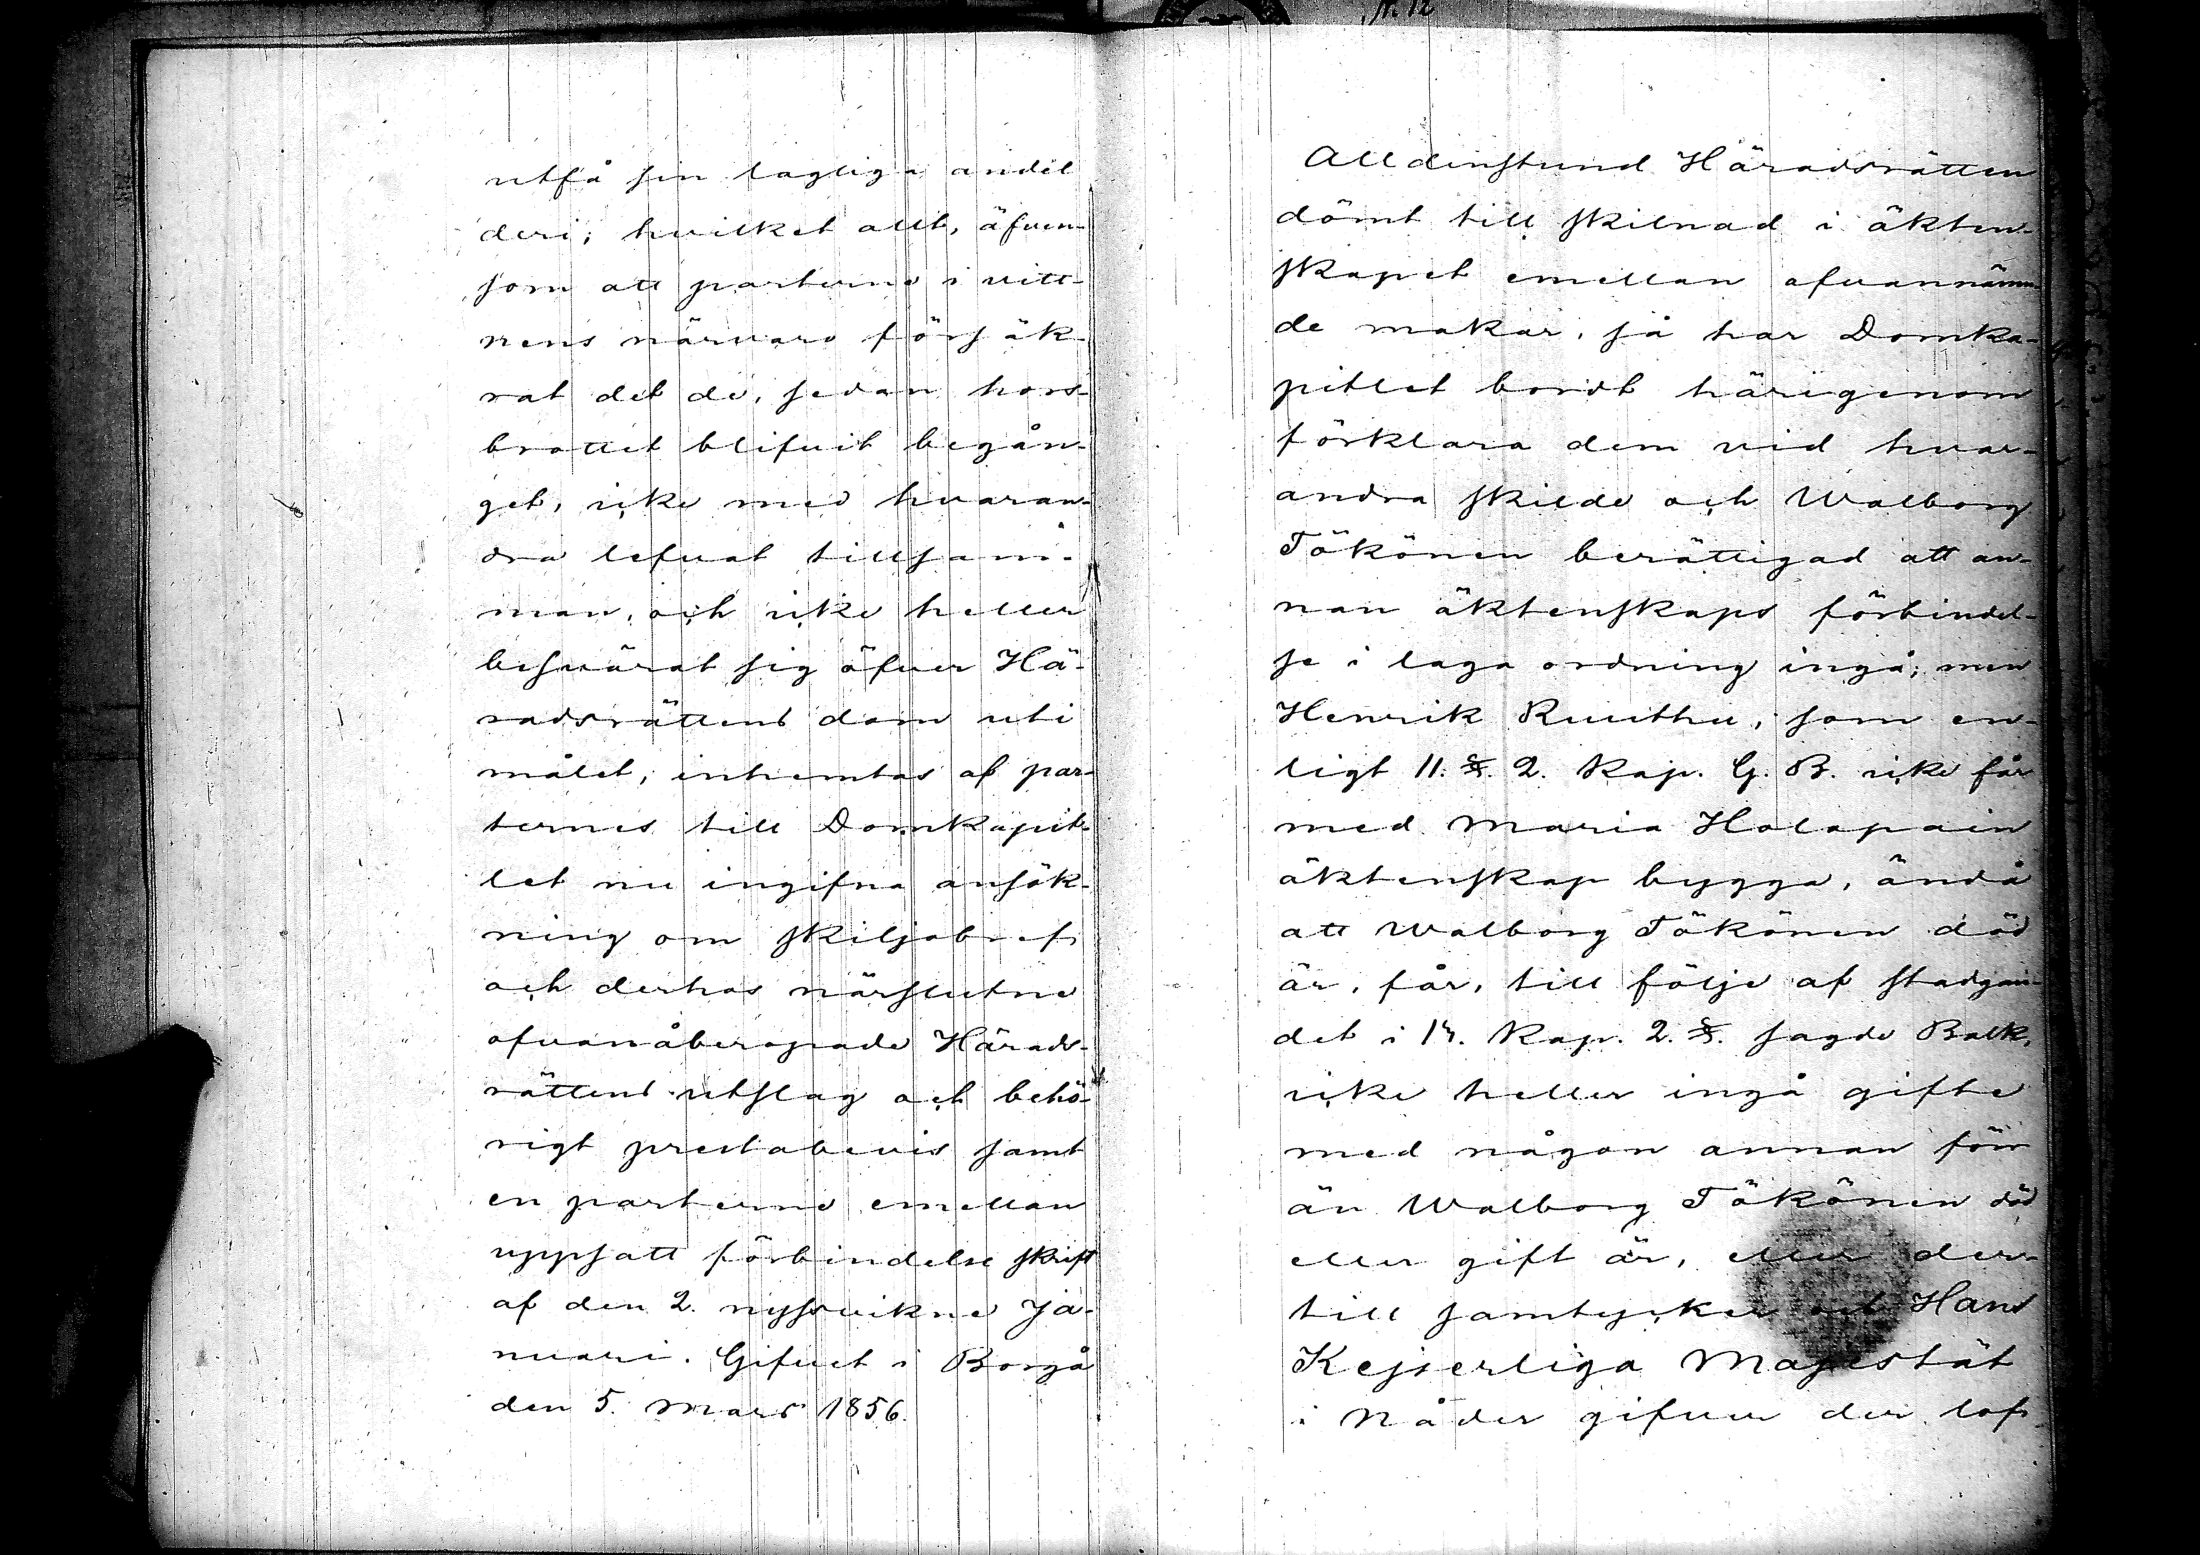 utfå sin lagliga andel
deri; hvilket allt, äfven-
som att parterne i vitt-
nens närvaro försäk-
rat det de, sedan hors-
brottet blifvit begån-
get, icke med hvaran-
dra lefvat tillsam-
man, och icke heller
besvärat sig öfver Hä-
radsrättens dom uti
målet, inhemtas af par-
ternes till Domkapit-
let nu ingifna ansök-
ning om skiljobref
och derhos närslutne
ofvanåberopade Härads-
rättens utslag och behö-
rigt prestabevis samt
en parterne emellan
uppsatt förbindelse skrift
af den 2. nyssvikne Ja-
nuari. Gifvet i Borgå
den 5. Mars 1856.
Alldenstund Häradsrätten
dömt till skilnad i äkten-
skapet emellan ofvannämn-
de makar, så har Domka-
pitlet bordt härigenom
förklara dem vid hvar-
andra skilde och Walborg
Tökönen berättigad att an-
nan äktenskaps förbindel-
se i laga ordning ingå; men
Henrik Ruuthu, som en-
ligt 11. §. 2. Kap. G. B. icke får
med Maria Holapain
äktenskap bygga, ändå
att Walborg Tökönen död
är, får, till följe af stadgan-
det i 13. Kap. 2. §. sagde Balk,
icke heller ingå gifte
med någon annan förr
än Walborg Tökönen död
eller gift är, eller der-
till samtycker och Hans
Kejserliga Majestät
i Nåder gifver der lof